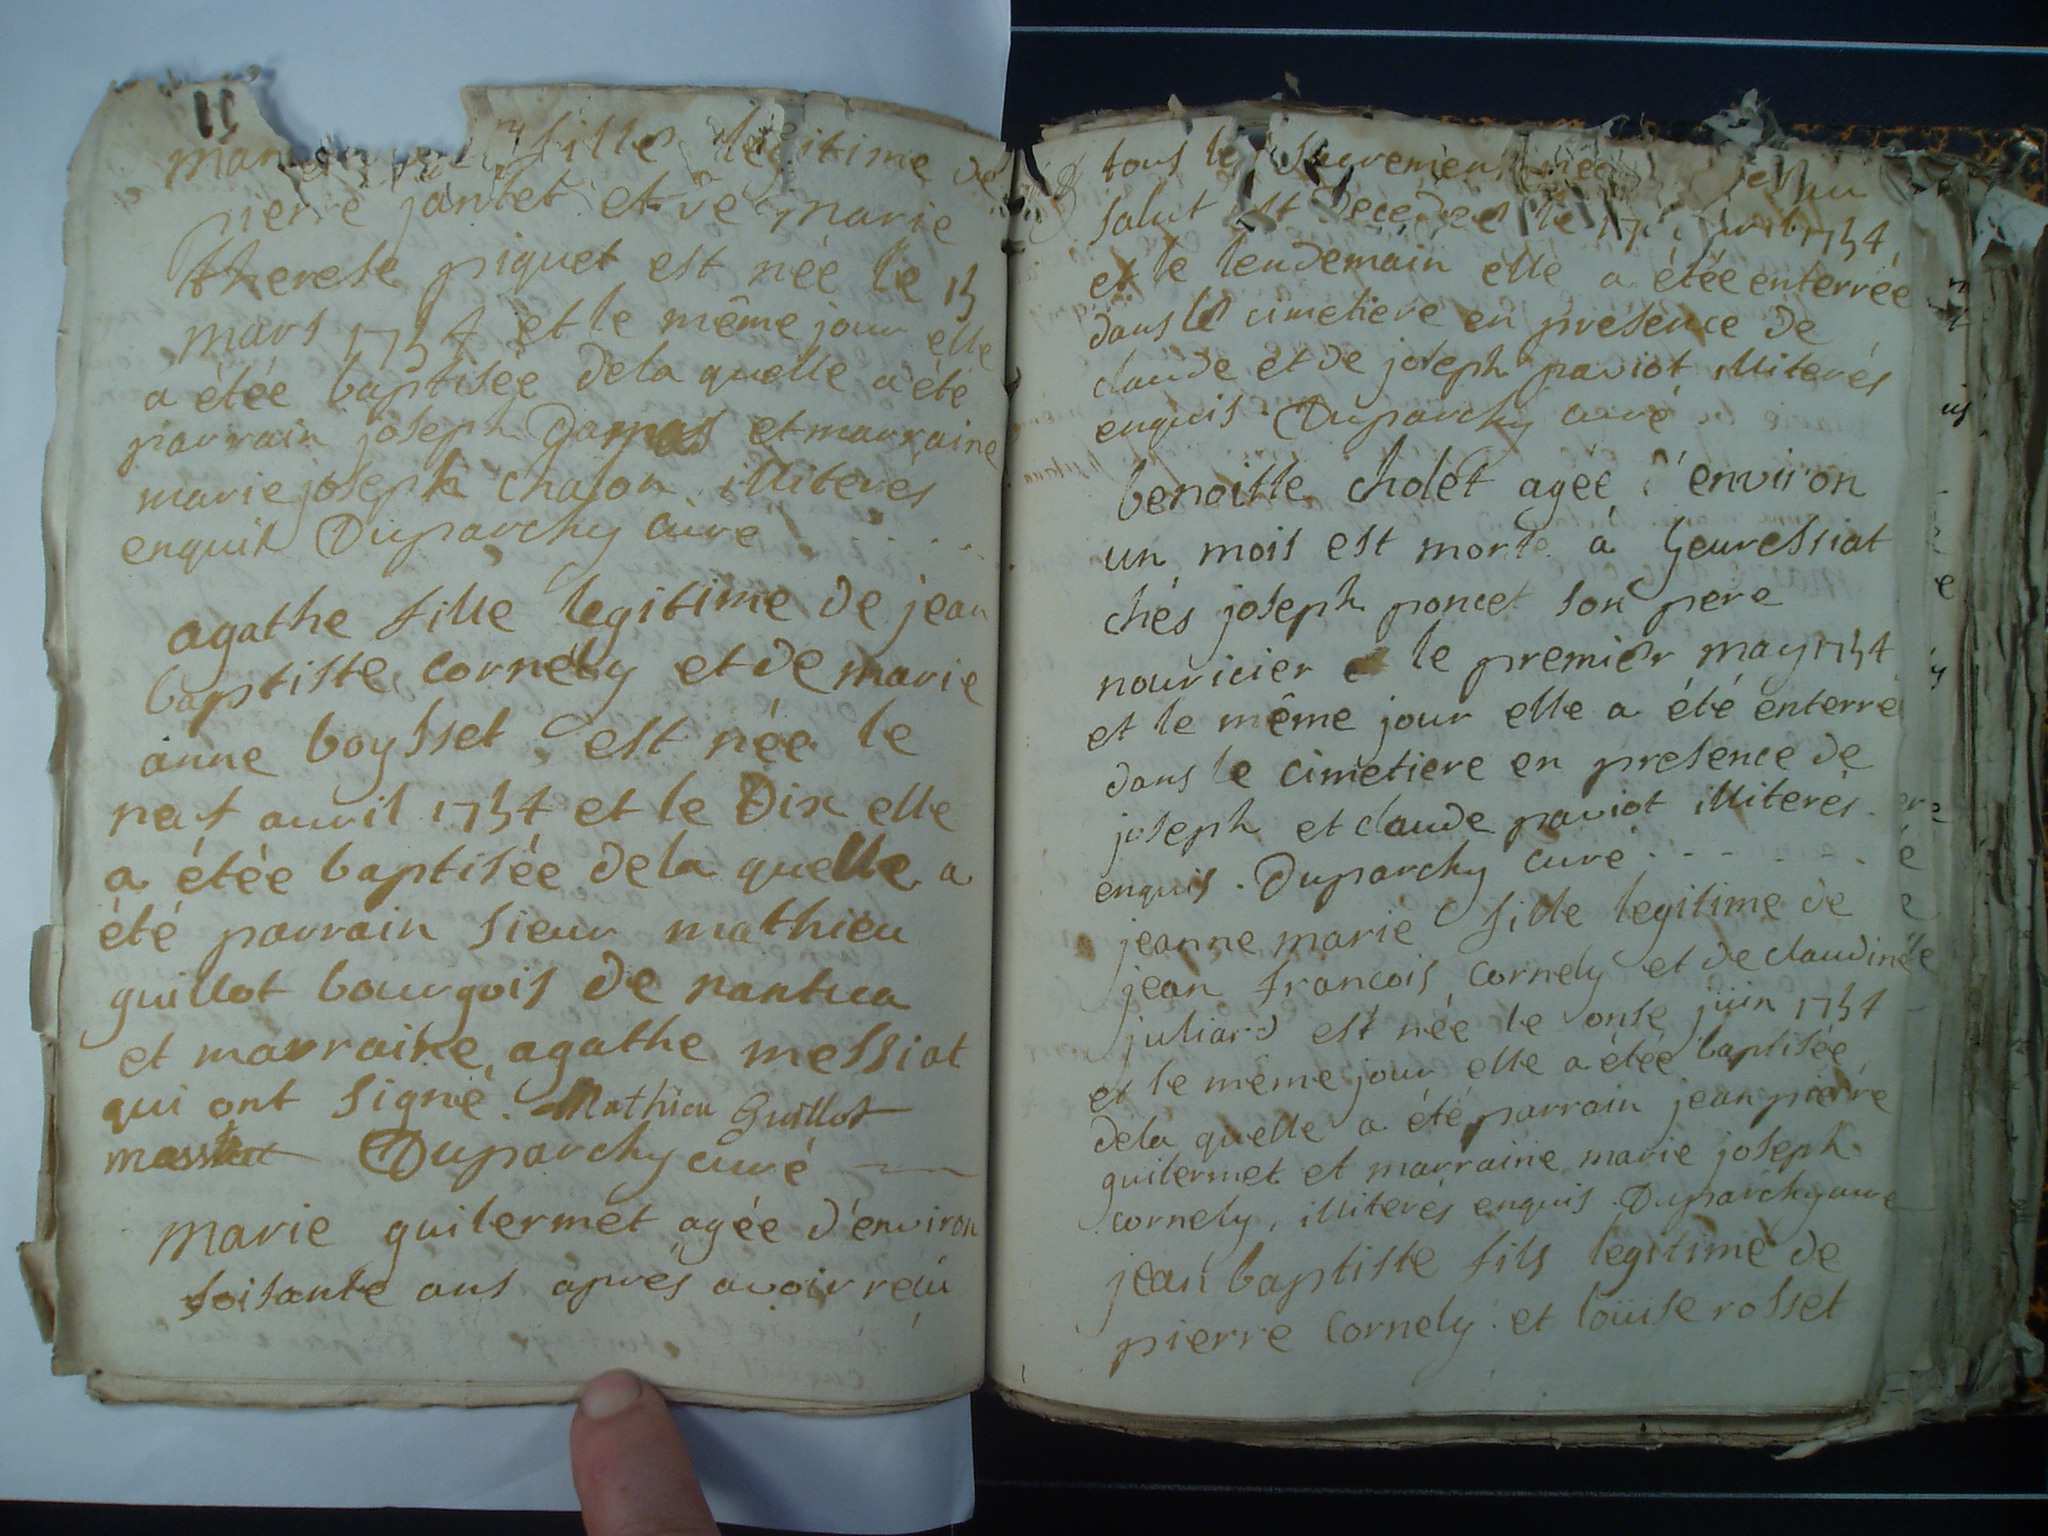 fille legitime de
pierre jantet et de marie
therese piquet est née le 13
mars 1754 et le même jour elle
a étée baptisée dela quelle a été
parrain joseph et marraine
marie joseph chalon illiterés
enquis Duparchy curé
agathe fille legitime de jean
baptiste cornély et de marie
anne boysset est née le
neuf avril 1754 et le Dix elle
a étée baptisée dela quelle a
été parrain sieur mathieu
guillot bourgois de nantua
et marraine agathe messiat
qui ont signé. Mathieu Guillot
Duparchy curé
Marie guilermet agée d'environ
soisante ans aprés avoir reçu
tous les sacremens
salut est decedée le 17e avril 1754
et le lendemain elle a étée enterrée
dans le cimetiere en presence de
claude et de joseph paviot illiterés
enquis. Duparchy curé
benoitte cholet agée d'environ
un mois est morte à Geuressiat
chés joseph poncet son pere
nouricier le premier may 1754
et le même jour elle a été enterré
dans le cimetiere en presence de
joseph et claude paviot illiterés
enquis. Duparchy curé
jeanne marie fille legitime de
jean francois cornely et de claudine
juliard est née le onse juin 1754
et le même jour elle a étée baptisée
dela quelle a été parrain jean pierre
guilermet et marraine marie joseph
cornely, illiterés enquis. Duparchy curé
jean baptiste fils legitime de
pierre cornely et louise rosset